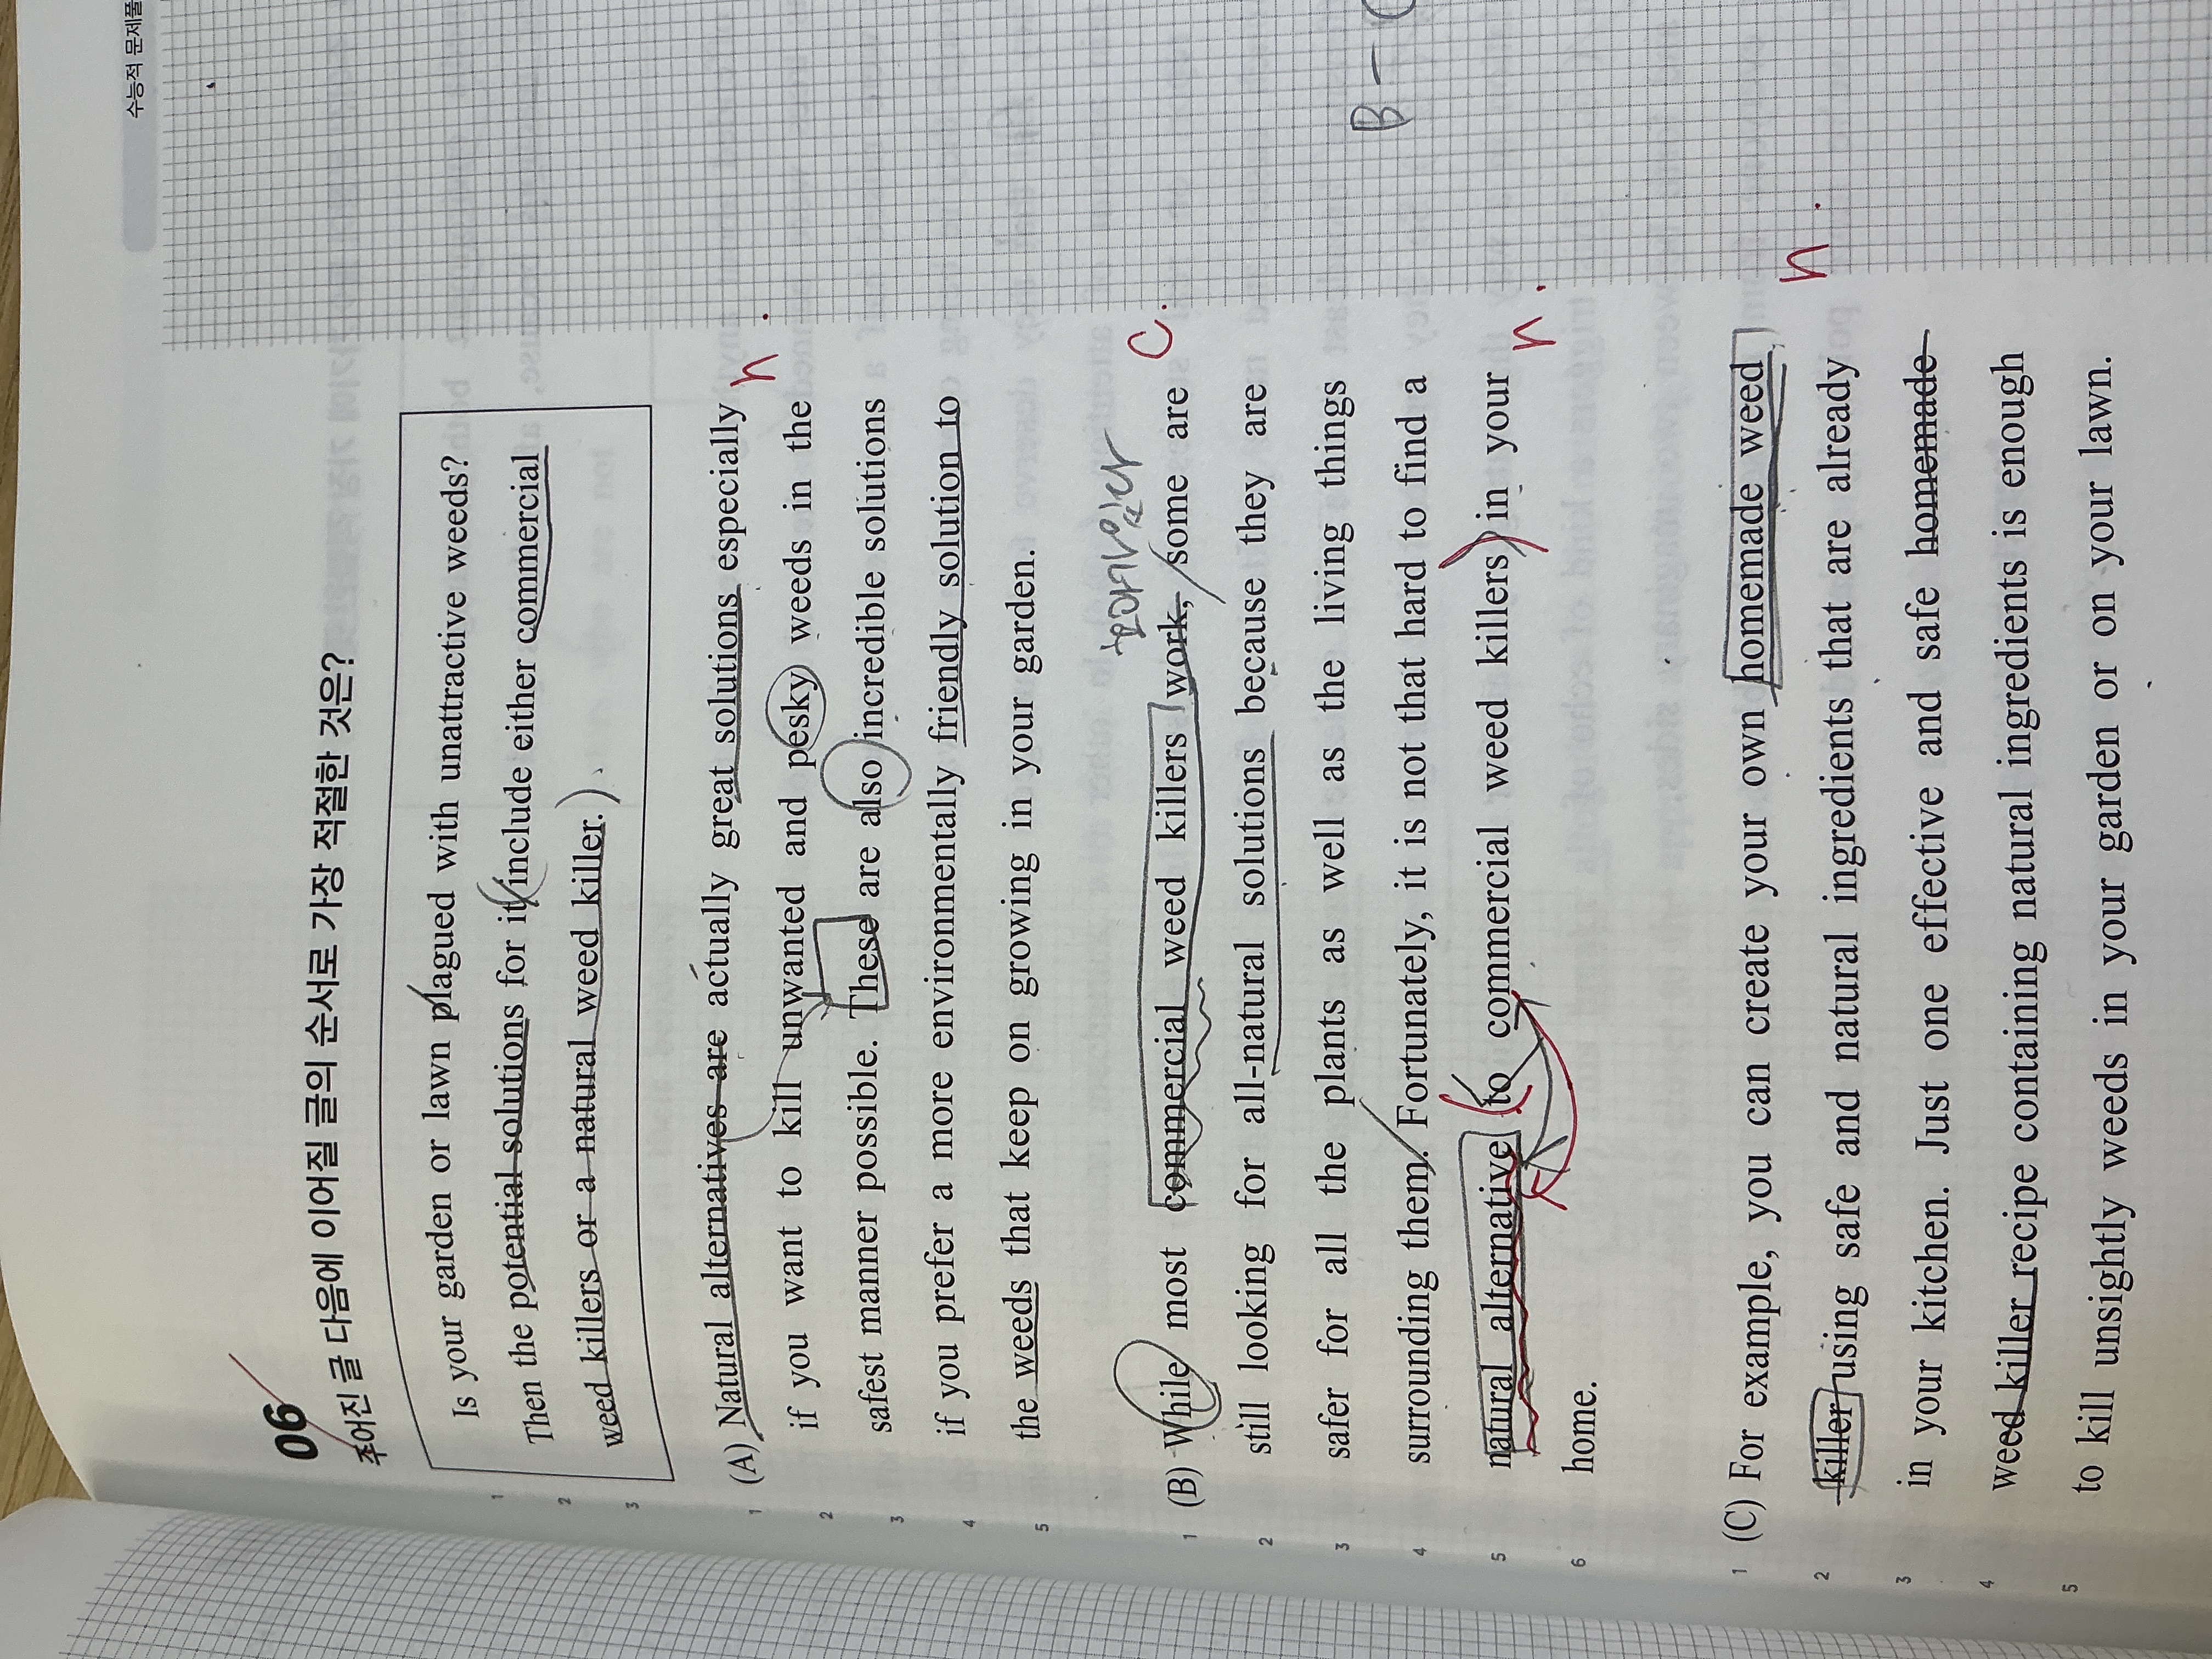 수능적 문제풀
06
주어진 글 다음에 이어질 글의 순서로 가장 적절한 것은?
1 Is your garden or lawn plagued with unattractive weeds?
2 Then the potential solutions for it include either commercial
3 weed killers or a natural weed killer.
1 (A) Natural alternatives are actually great solutions especially n.
2 if you want to kill unwanted and pesky weeds in the
3 safest manner possible. These are also incredible solutions
4 if you prefer a more environmentally friendly solution to
5 the weeds that keep on growing in your garden.
효과가있다
1 (B) While most commercial weed killers work, some are C.
2 still looking for all-natural solutions because they are
3 safer for all the plants as well as the living things
4 surrounding them. Fortunately, it is not that hard to find a
5 natural alternative to commercial weed killers in your n.
6 home.
B - C
1 (C) For example, you can create your own homemade weed
2 killer using safe and natural ingredients that are already n.
3 in your kitchen. Just one effective and safe homemade
4 weed killer recipe containing natural ingredients is enough
5 to kill unsightly weeds in your garden or on your lawn.